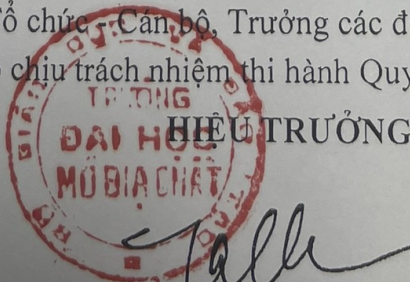 ổ chức - Cán bộ, Trưởng các đ
chịu trách nhiệm thi hành Quy
HIỆU TRƯỞNG
TRƯỜNG
ĐẠI HỌC
MỎ ĐỊA CHẤT